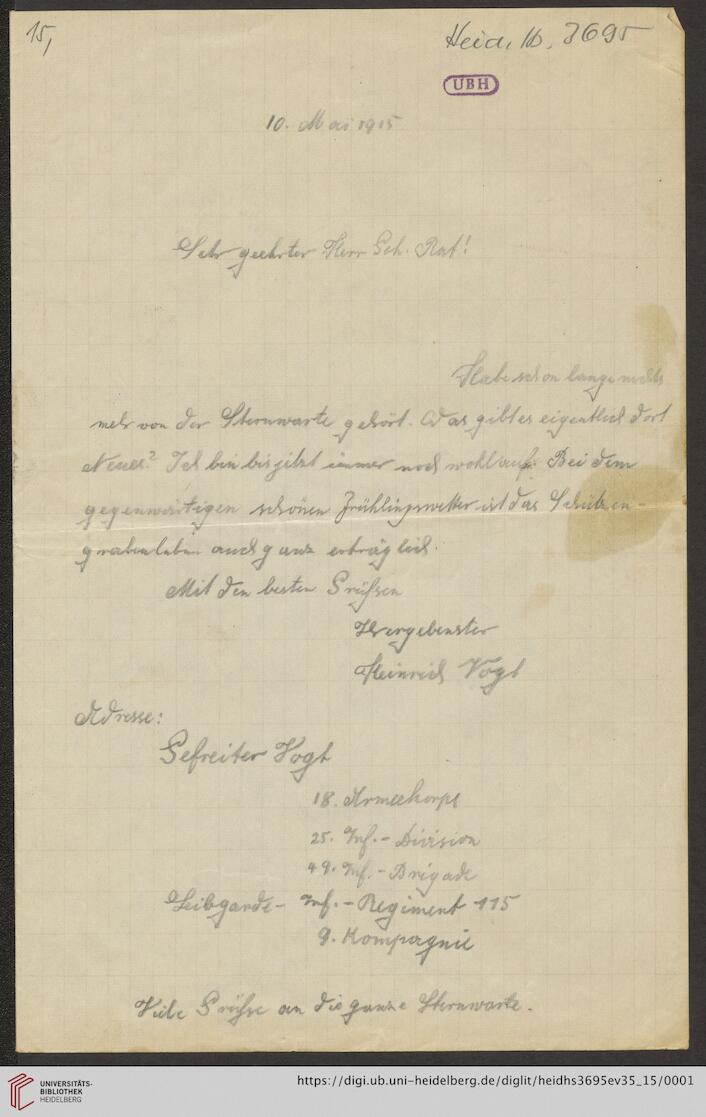 15,
Heid. Hs. 3695
UBH
10. Mai 1915
Sehr geehrter Herr Geh. Rat!
Habe schon lange nichts
mehr von der Sternwarte gehört. Was gibt es eigentlich dort
Neues? Ich bin bis jetzt immer noch wohlauf. Bei dem
gegenwärtigen schönen Frühlingswetter ist das Schützen-
grabenleben auch ganz erträglich.
Mit den besten Grüßen
Ihr ergebenster
Heinrich Vogt
Adresse:
Gefreiter Vogt
18. Armeekorps
25. Inf.-Division
49. Inf.-Brigade
Leibgarde-Inf.-Regiment 115
9. Kompagnie
Viele Grüße an die ganze Sternwarte.
UNIVERSITÄTS-
BIBLIOTHEK
HEIDELBERG
https://digi.ub.uni-heidelberg.de/diglit/heidhs3695ev35_15/0001